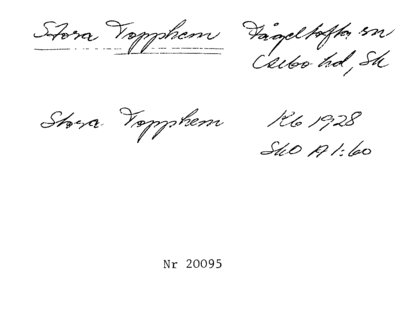 Stora Topphem Fågeltofta sn
Albo hd, Sk
Stora Topphem Kb 1928
SkO A 1:60
Nr 20095